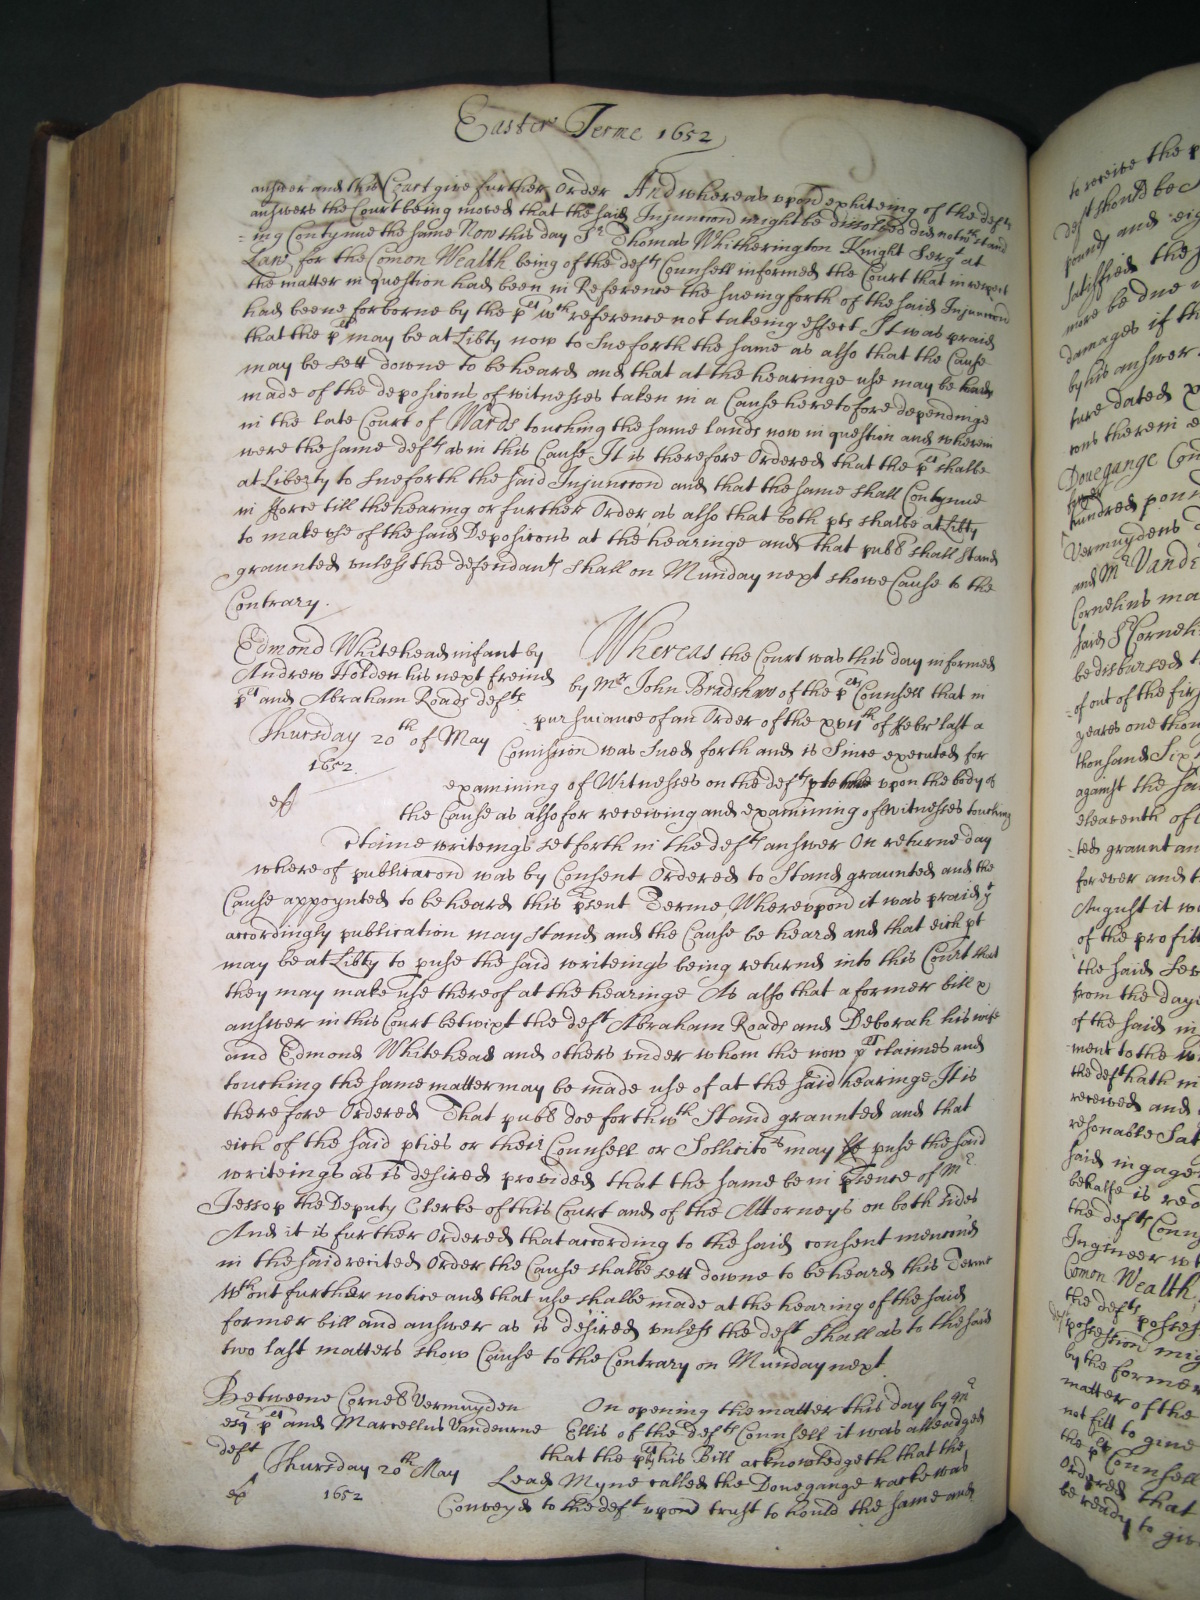 Easter Terme 1652
answer and this Court give further Order And whereas vpon exhiteing of the defts
answers the Court being moved that the said Injunccon might be dissolved did notwthstand
=ing Contynue the same Now this day Sr Thomas Whitherington Knight Sergt at
Law for the Comon Wealth being of the defts Counsell informed the Court that in respect
the matter in question had been in Reference the sueing forth of the said Injunccon
had beene forborne by the plt wth reference not takeing effect It was praid
that the plt may be at Libty now to sue forth the same as also that the Cause
may be sett downe to be heard and that at the hearinge use may be
made of the depositons of witnesses taken in a Cause heretofore dependinge
in the late Court of Wards touching the same lands now in question and wherein
were the same defts as in this Cause It is therefore Ordered that the plt shalbe
at Liberty to sue forth the said Injunccon and that the same shall Contynue
in fforce till the hearing or further Order as also that both pts shalbe at Libty
to make vse of the said Depositons at the hearinge and that publ shall stand
graunted vnless the defendants shall on Munday next shewe Cause to the
Contrary.
Edmond Whitehead infant by
Andrew Holden his next freind
plt and Abraham Roads defts
Thursday 20th of May
1652.
Whereas the Court was this day informed
by Mr John Bradshaw of the plts Counsell that in
pursuiance of an Order of the xviith of ffebr last a
Comission was sued forth and is Since executed for
examining of Witnesses on the defts vpon the body of
the Cause as also for receiving and examining of Witnesses touching
writeings set forth in the defts answer On returne day
whereof publicacon was by Consent Ordered to Stand graunted and the
Cause appoynted to be heard this psent Terme, Wherevpon it was praid yt
accordingly publication may stand and the Cause be heard and that eich pt
may be at Libty to puse the said writeings being returnd into this Court that
they may make use thereof at the hearinge As also that a former bill &
answer in this Court betwixt the deft Abraham Roads and Deborah his wife
and Edmond Whitehead and others vnder whom the now plt claimes and
touching the same matter may be made use of at the said hearinge It is
therefore Ordered That publ doe forthwth Stand graunted and that
eich of the said pties or their Counsell or Sollicitors may puse the said
writeings as is desired provided that the same be in psence of Mr
Jessop the Deputy Clerke of this Court and of the Attorneys on both sides
And it is further Ordered that according to the said consent menconed
in the said recited Order the Cause shalbe sett downe to be heard this Terme
wthout further notice and that use shalbe made at the hearing of the said
former bill and answer as is desired vnless the deft Shall as to the said
two last matters show Cause to the Contrary on Munday next
Betweene Cornel Vermuyden
esq plt and Marcellus Vandeurne
deft
Thursday 20th May
1652
On opening the matter this day by Mr
Ellis of the defts Counsell it was alleadged
that the plt by his Bill acknowledgeth that the
Lead Myne called the Dovegange rake was
Conveyd to the deft vpon trust to hould the same and
to receive the
deft should be
pounds and
satisfied the
more be due
damages if
by his answer
ture dated
cons therein
Dovegange
hundred
Vermuydens
and Mr
Cornelius
said Sr
be disbursed
of out of the
yeares one
thousand
against the
eleaventh of
ted graunt
forever and
August it
of the
the said
from the daye
of the said
ment to the
the deft hath
received and
resonable
said
behalfe is
the defts
Ingineer
Comon Wealth
the defts
possession
by the former
matter of the
not fitt to give
the plts Counsell
Ordered that
be ready to